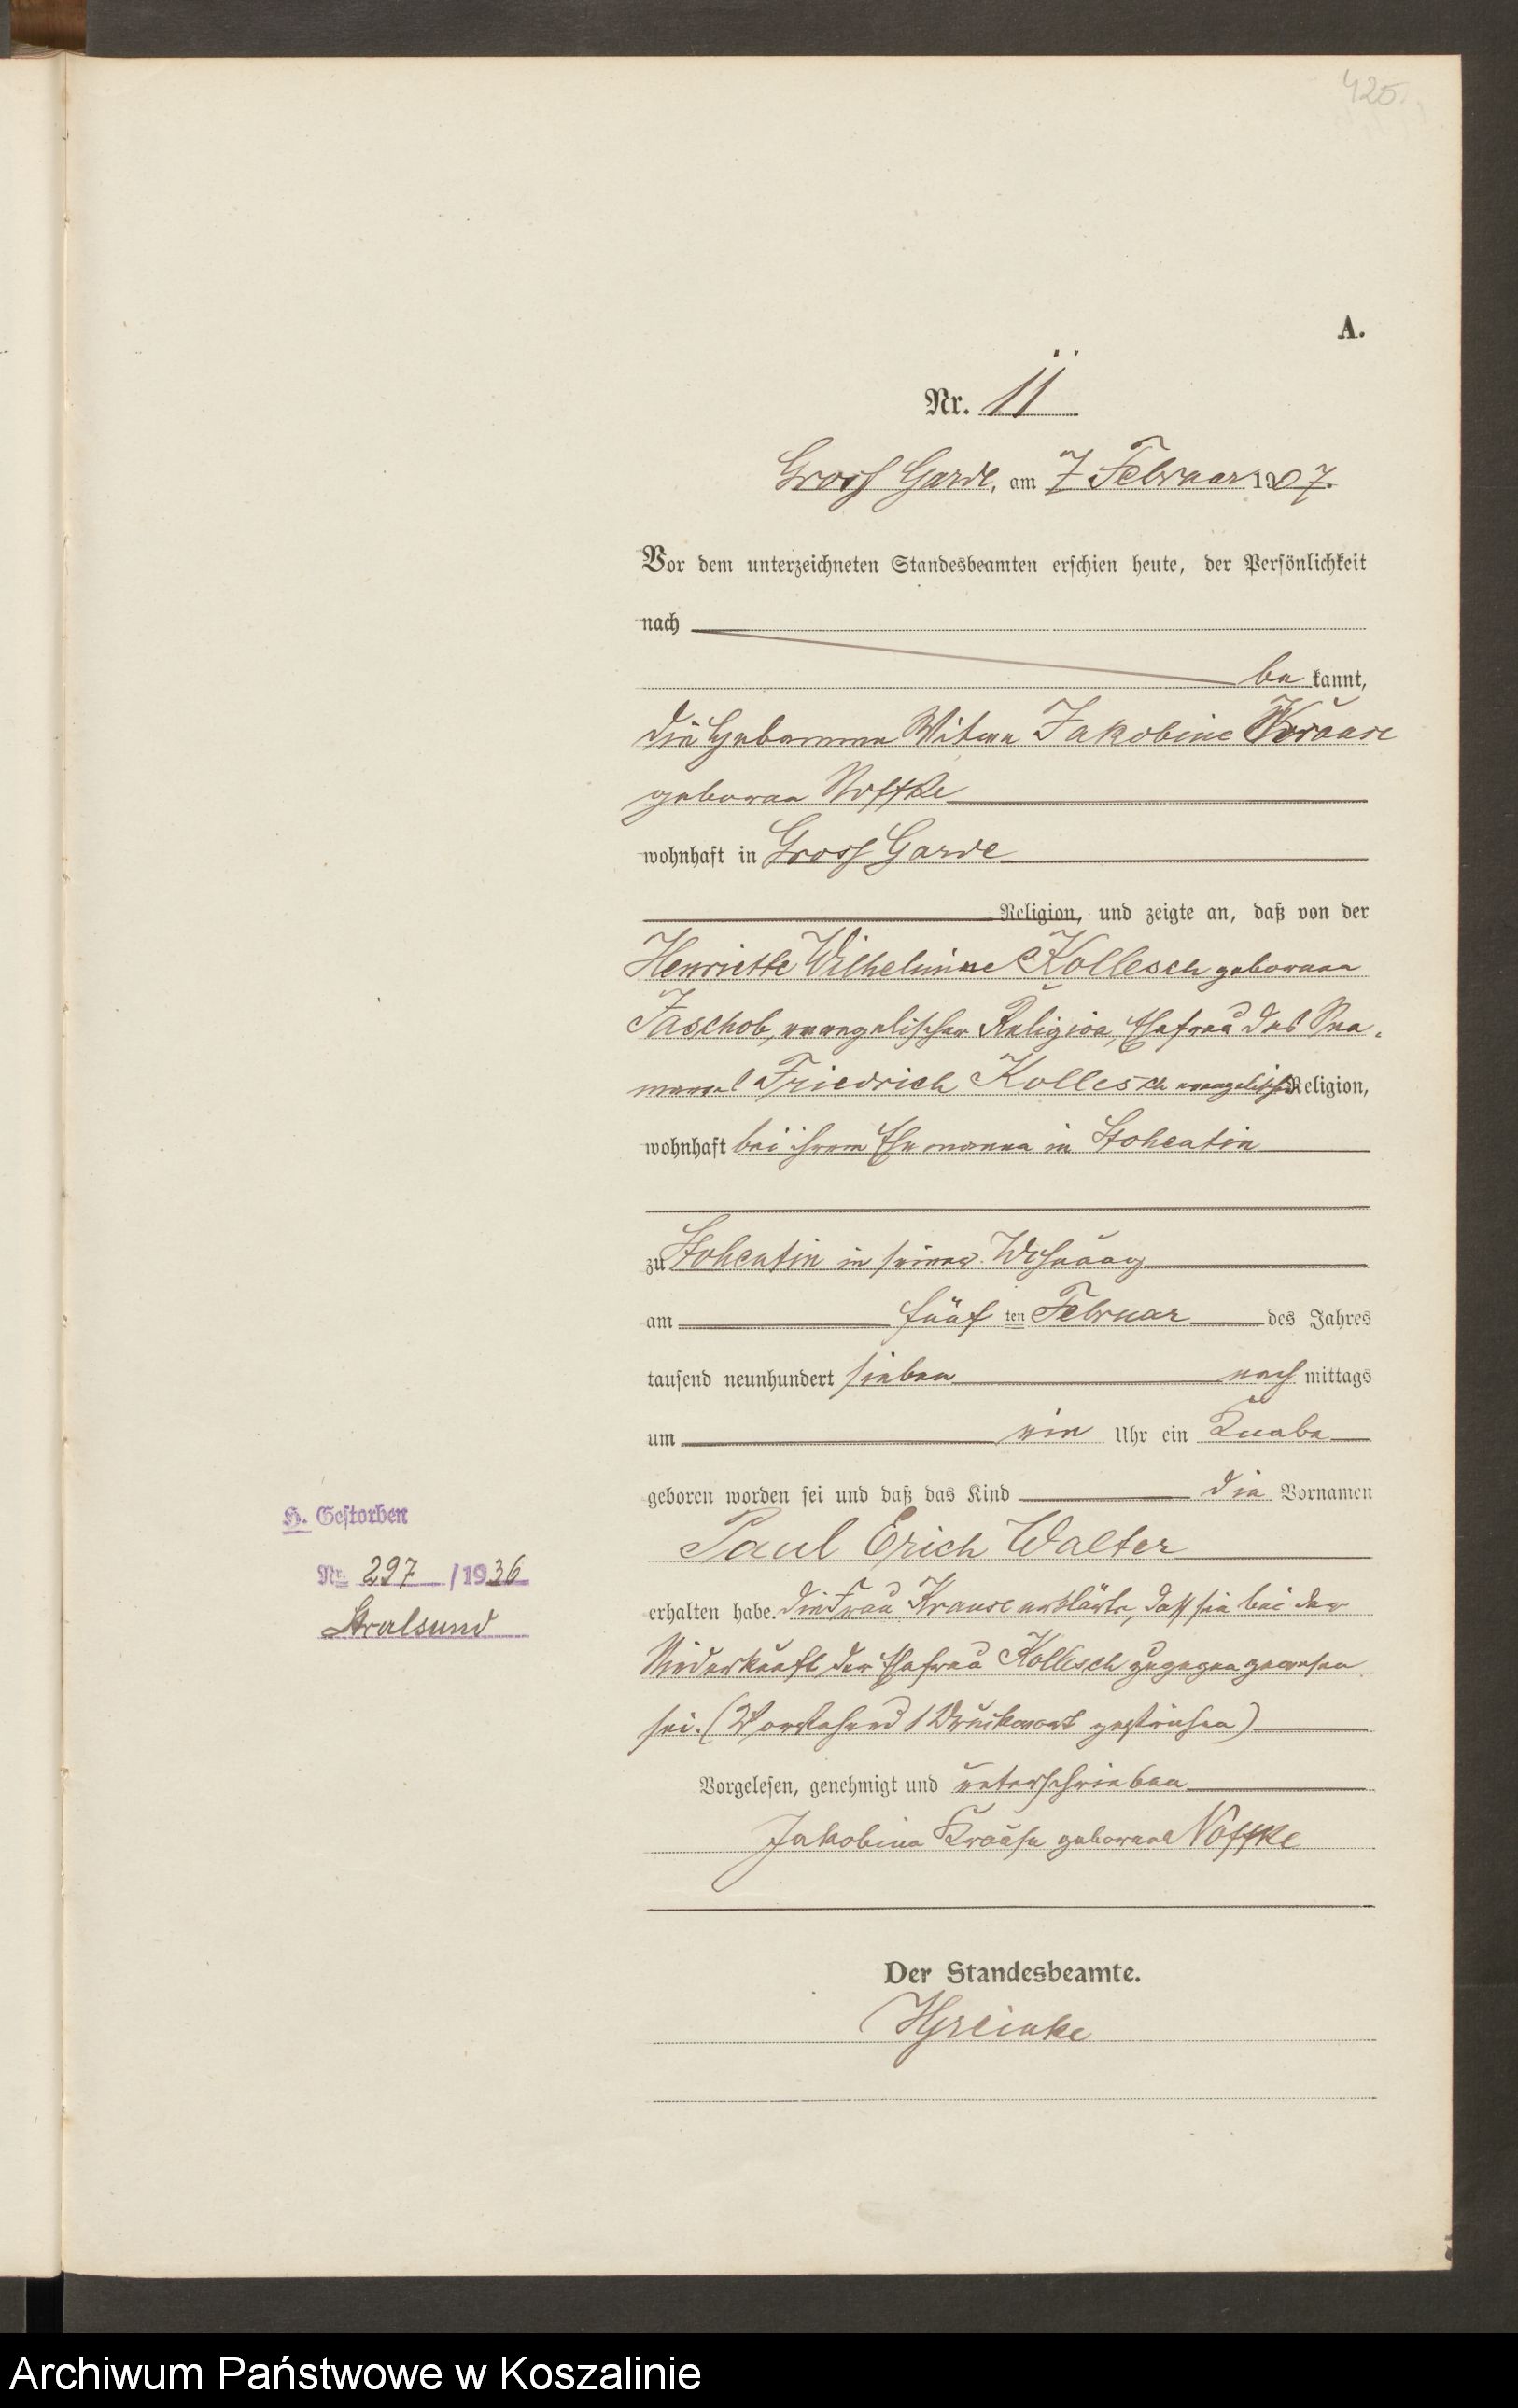 425.
A.
Nr. 11
Gross Garde, am 7 Februar 1907.
Vor dem unterzeichneten Standesbeamten erschien heute, der Persönlichkeit
nach
be kannt,
die Hebamme Witwe Jakobine Krause
geborene Noffke
wohnhaft in Gross Garde
Religion, und zeigte an, daß von der
Henriette Wilhelmine Kollesch geborene
Jaschob, evangelischer Religion, Ehefrau des See-
manns Friedrich Kollesch evangelischer Religion,
wohnhaft bei ihrem Ehemanne in Stohentin
zu Stohentin in seiner Wohnung
am fünf ten Februar des Jahres
tausend neunhundert sieben nach mittags
um ein Uhr ein Knabe
geboren worden sei und daß das Kind die Vornamen
Paul Erich Walter
erhalten habe. Die Frau Krause erklärte, daß sie bei der
Niederkunft der Ehefrau Kollesch zugegen gewesen
sei. (Vorstehend 1 Druckwort gestrichen)
Vorgelesen, genehmigt und unterschrieben
Jakobine Krause geborene Noffke
Der Standesbeamte.
H. Gestorben
Nr. 297 /1936
Stralsund
Archiwum Państwowe w Koszalinie